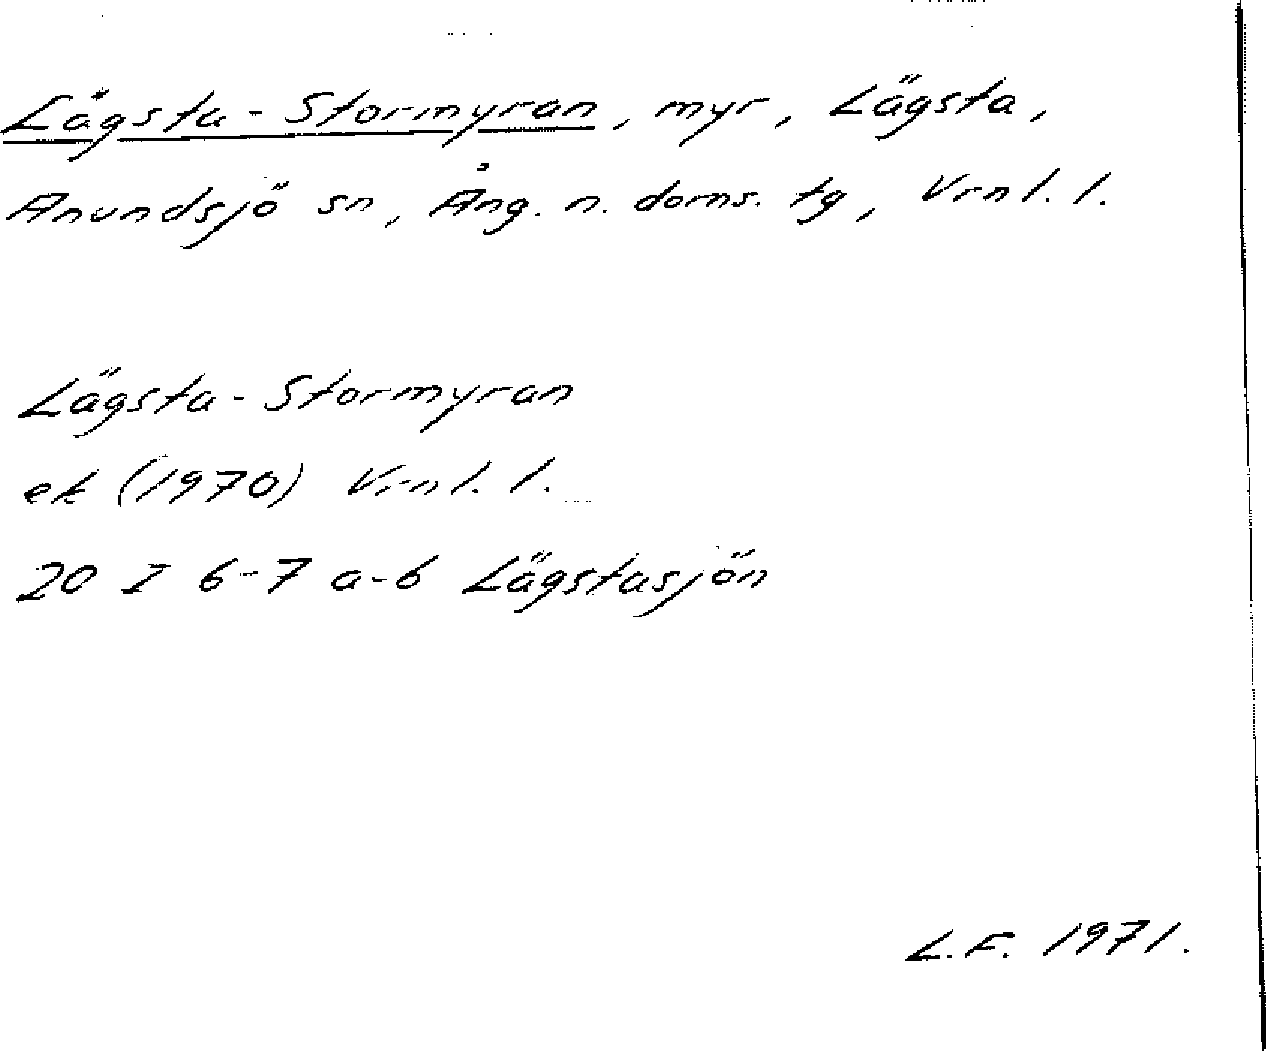 Lågsta-Stormyran, myr, Lägsta,
Anundsjö sn, Ång. n. doms. tg, Vrnl. l.
Lägsta-Stormyran
ek (1970) Vrnl. l.
20 I 6-7 a-b Lägstasjön
L.F. 1971.